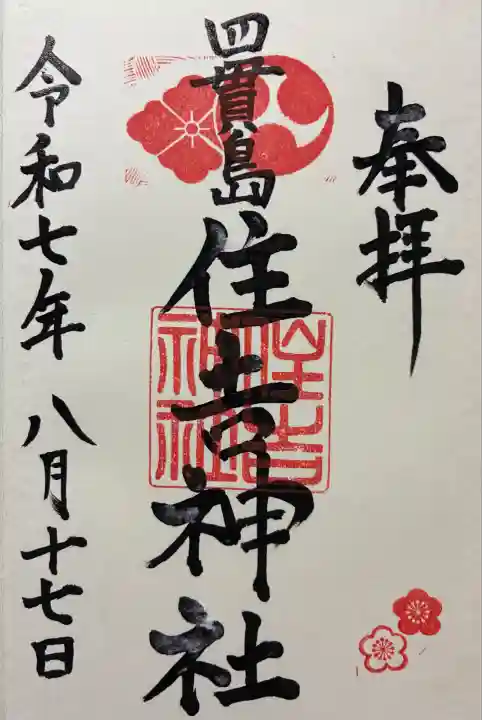 奉拝
四貫島
住吉神社
住吉
神社
令和七年 八月十七日